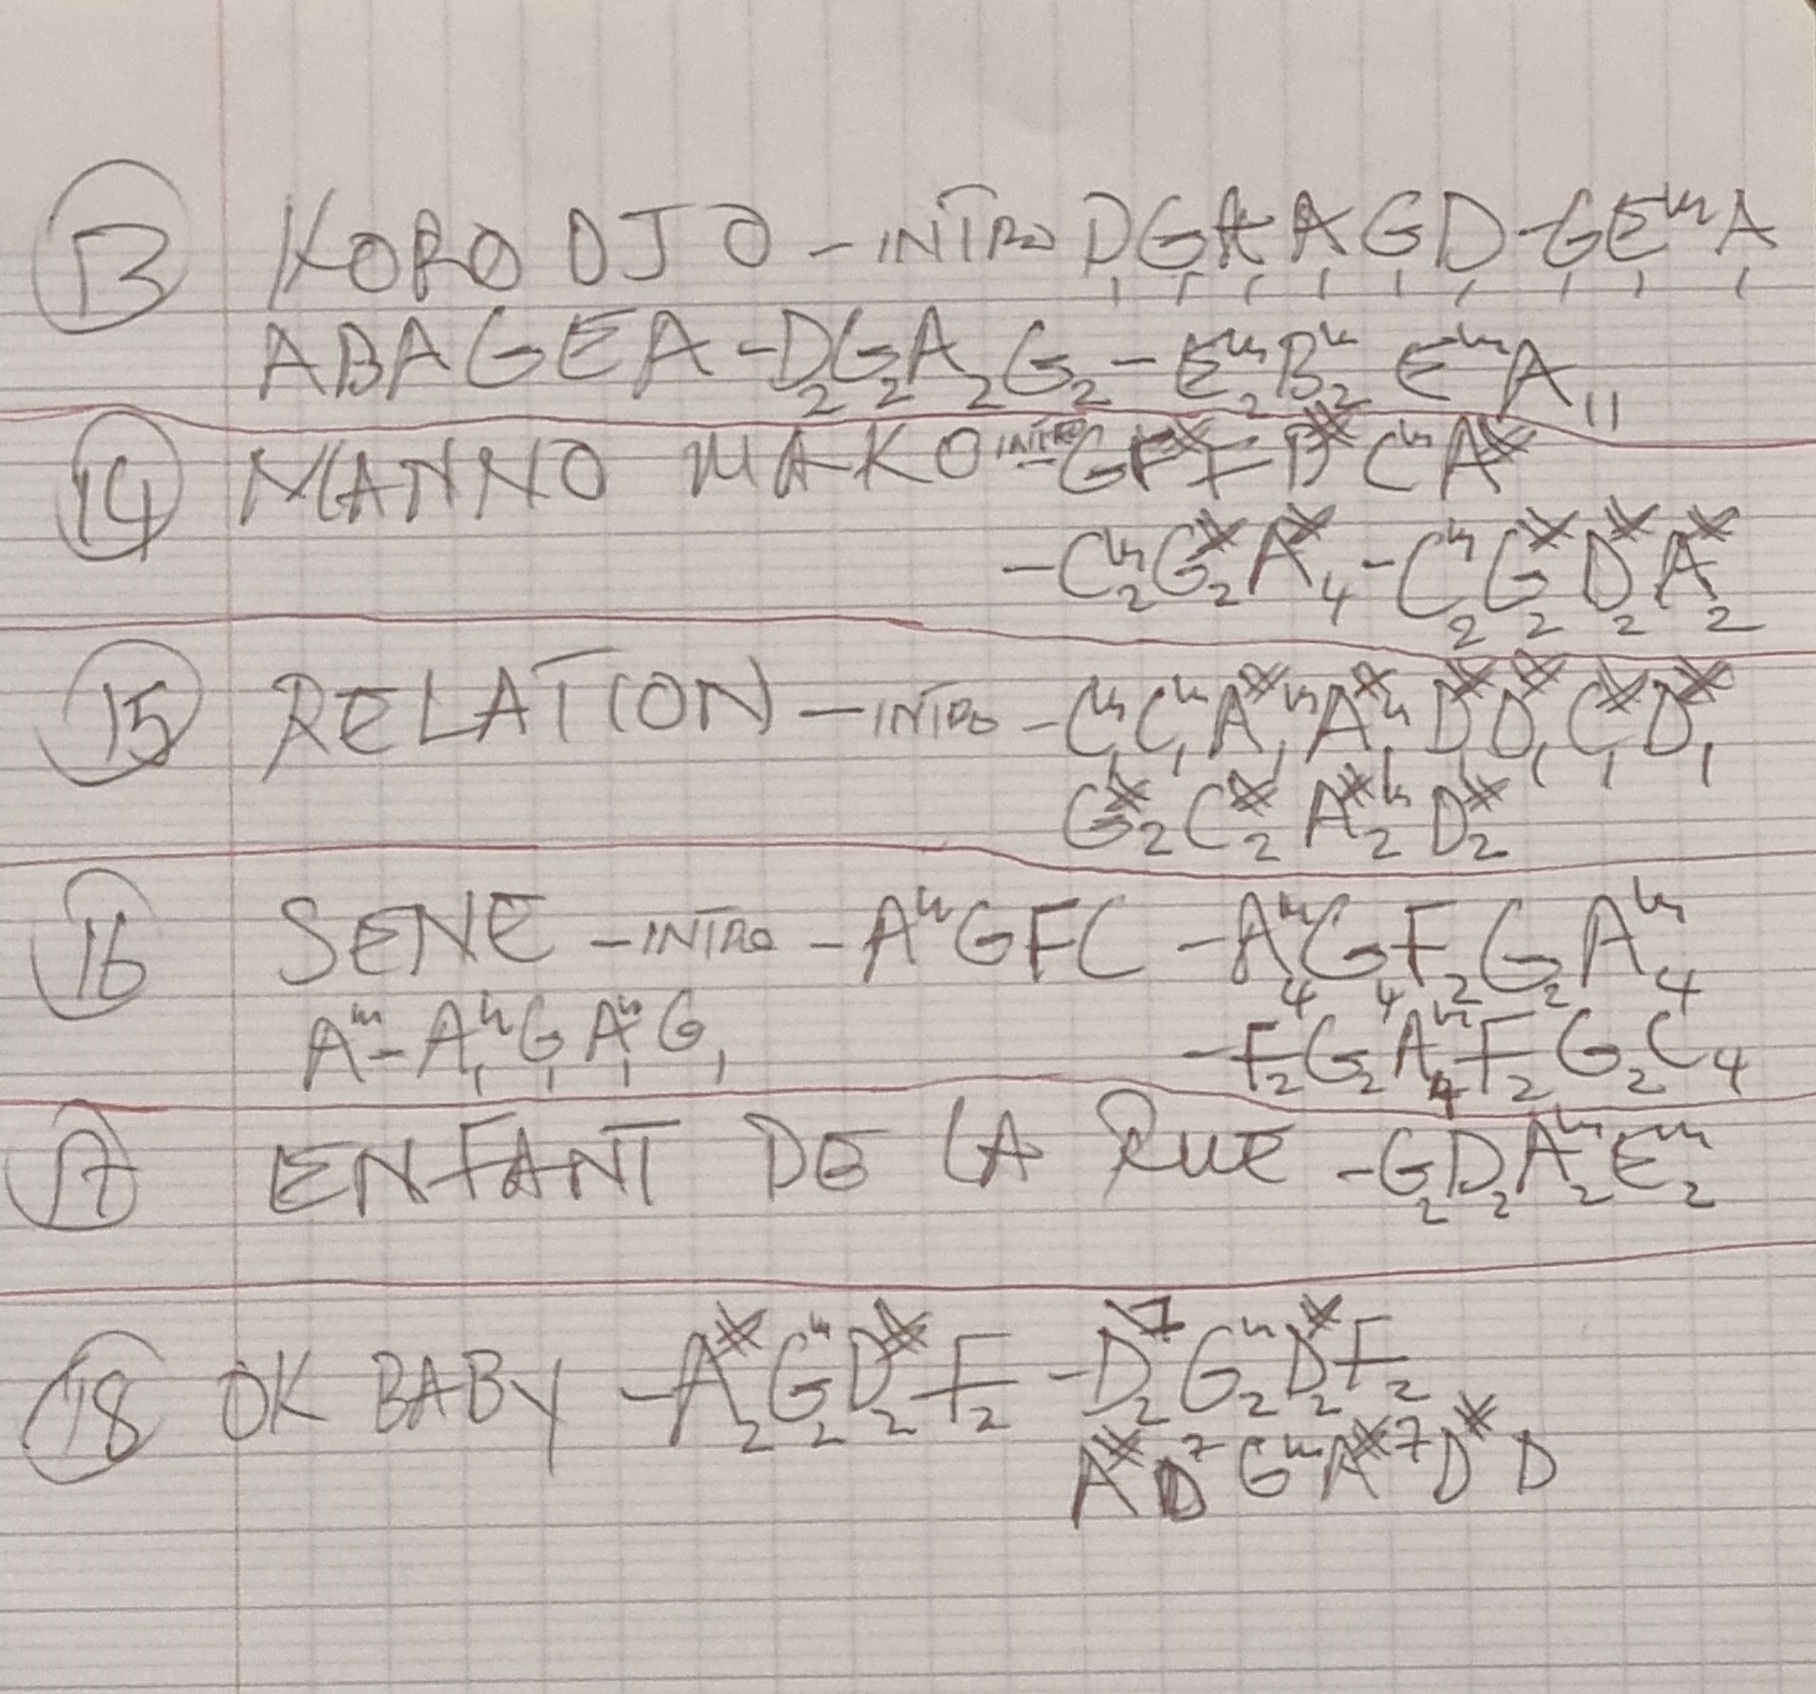 13 KORO DJO - INTRO D1 G1 A1 A1 G1 D1 - G1 Em1 A1
A B A G E A - D2 G2 A2 G2 - Em2 Bm2 Em A11
14 MANNO MAKO INTRO - G F# F D# Cm A#
- Cm2 G#2 A#4 - Cm2 G#2 D#2 A#2
15 RELATION - INTRO - Cm1 Cm1 A#m1 A#m1 D#1 D#1 C#1 D#1
G#2 C#2 A#m2 D#2
16 SENE - INTRO - Am G F C - Am4 G4 F2 G2 Am4
Am - Am1 G1 Am1 G1 - F2 G2 Am4 F2 G2 C4
17 ENFANT DE LA RUE - G2 D2 Am2 Em2
18 OK BABY - A#2 Gm2 D#2 F2 - D72 Gm2 D#2 F2
A# D7 Gm A#7 D# D